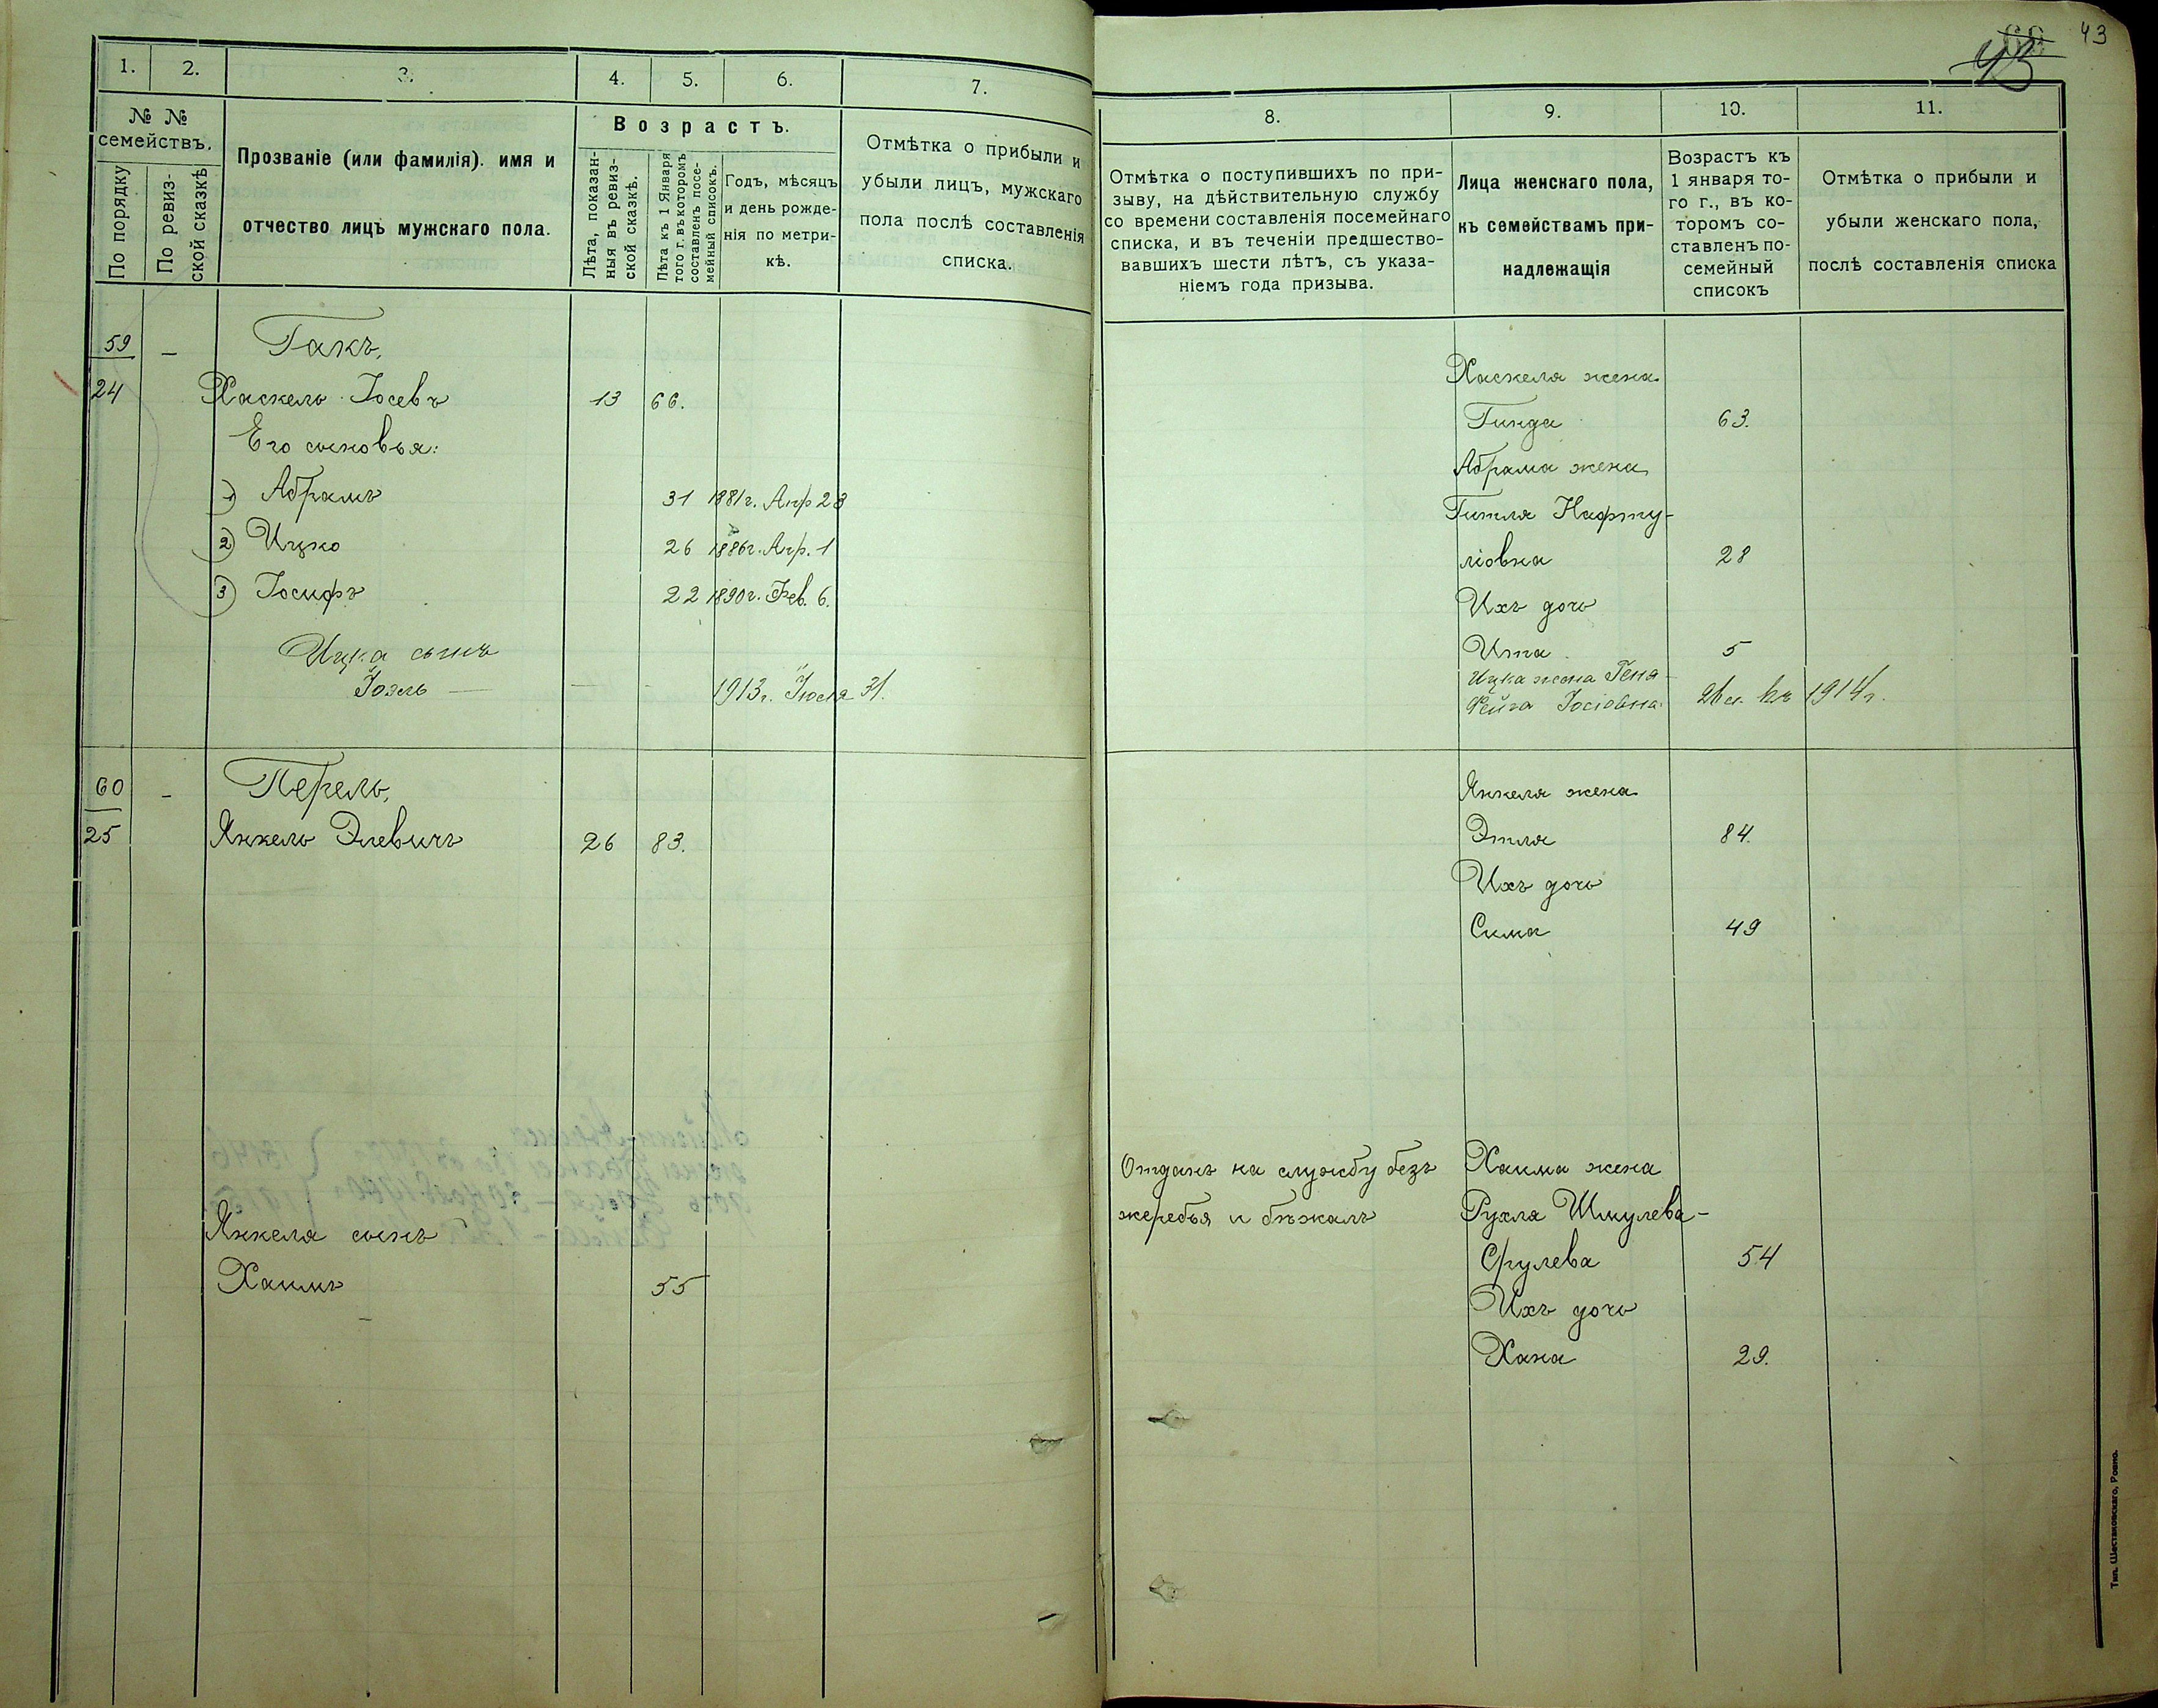 1. 2. 3. 4. 5. 6. 7.
№ №
семействъ.
По порядку
По ревиз-
ской сказкѣ
Прозваніе (или фамилія). имя и
отчество лицъ мужскаго пола.
Возрастъ.
Лѣта, показан-
ныя въ ревиз-
ской сказкѣ.
Лѣта къ 1 Января
того г. въ которомъ
составленъ посе-
мейный списокъ.
Годъ, мѣсяцъ
и день рожде-
нія по метри-
кѣ.
Отмѣтка о прибыли и
убыли лицъ, мужскаго
пола послѣ составленія
списка.
59 – Гакъ,
24 Хаскель Іосевъ 13 66.
Его сыновья:
1) Абрамъ 31 1881г. Апр 23
2) Ицко 26 1886г. Апр. 1
3) Іосифъ 22 1890г. Фев. 6.
Ицка сынъ
Іоэль — — - 1913г. Іюля 31.
60 – Перель,
25 Янкель Элевичъ 26 83.
Янкеля сынъ
Хаимъ 55
43
43
8. 9. 10. 11.
Отмѣтка о поступившихъ по при-
зыву, на дѣйствительную службу
со времени составленія посемейнаго
списка, и въ теченіи предшество-
вавшихъ шести лѣтъ, съ указа-
ніемъ года призыва.
Лица женскаго пола,
къ семействамъ при-
надлежащія
Возрастъ къ
1 января то-
го г., въ ко-
торомъ со-
ставленъ по-
семейный
списокъ
Отмѣтка о прибыли и
убыли женскаго пола,
послѣ составленія списка
Хаскеля жена
Гинда 63.
Абрама жена
Гитля Нафту-
ліовна 28
Ихъ дочь
Ита 5
Ицка жена Геня-
Фейга Іосіовна 26 л. къ 1914г.
Янкеля жена
Этля 84.
Ихъ дочь
Сима 49
Отданъ на службу безъ
жеребья и бѣжалъ
Хаима жена
Рухля Шмулева-
Срулева 54
Ихъ дочь
Хана 29.
Тип. Шестаковскаго, Ровно.